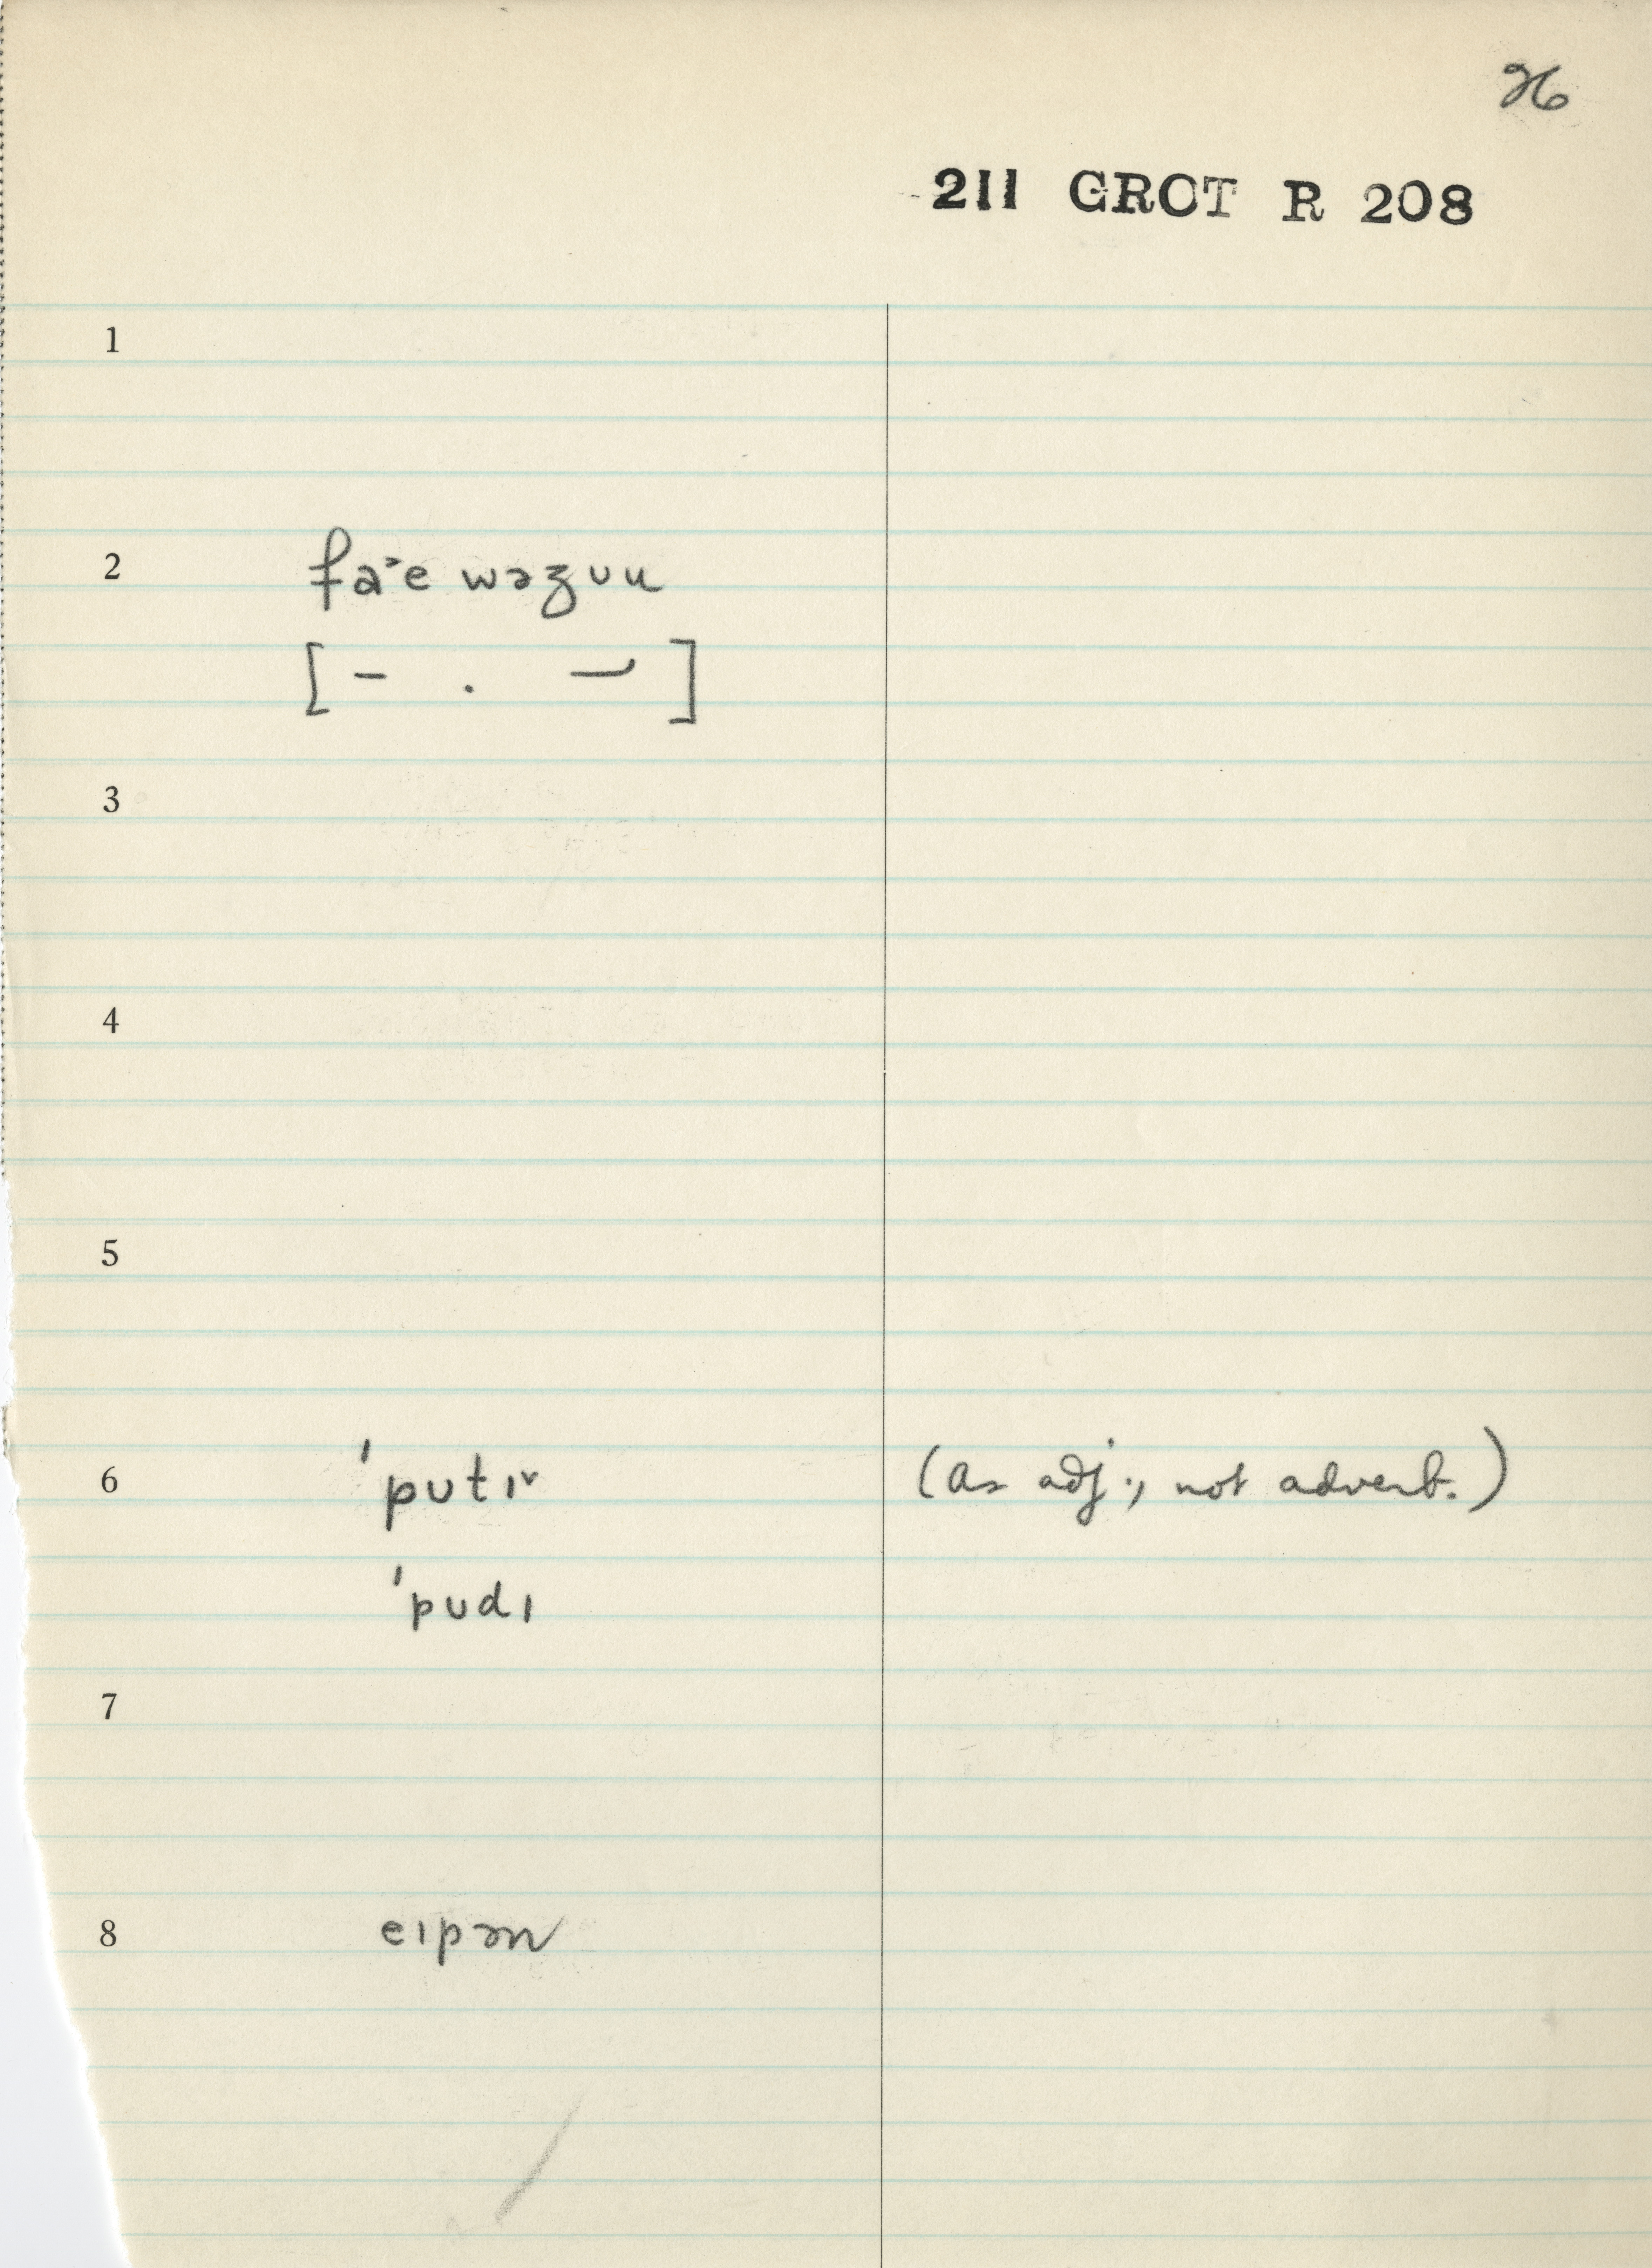 26
211 GROT R 208
1
2 fa˃e wəʒʊu
[ – . –⁄ ]
3
4
5
6 ˈpʊtɪ˅ (as adj., not adverb.)
ˈpʊdɪ
7
8 eɪpən